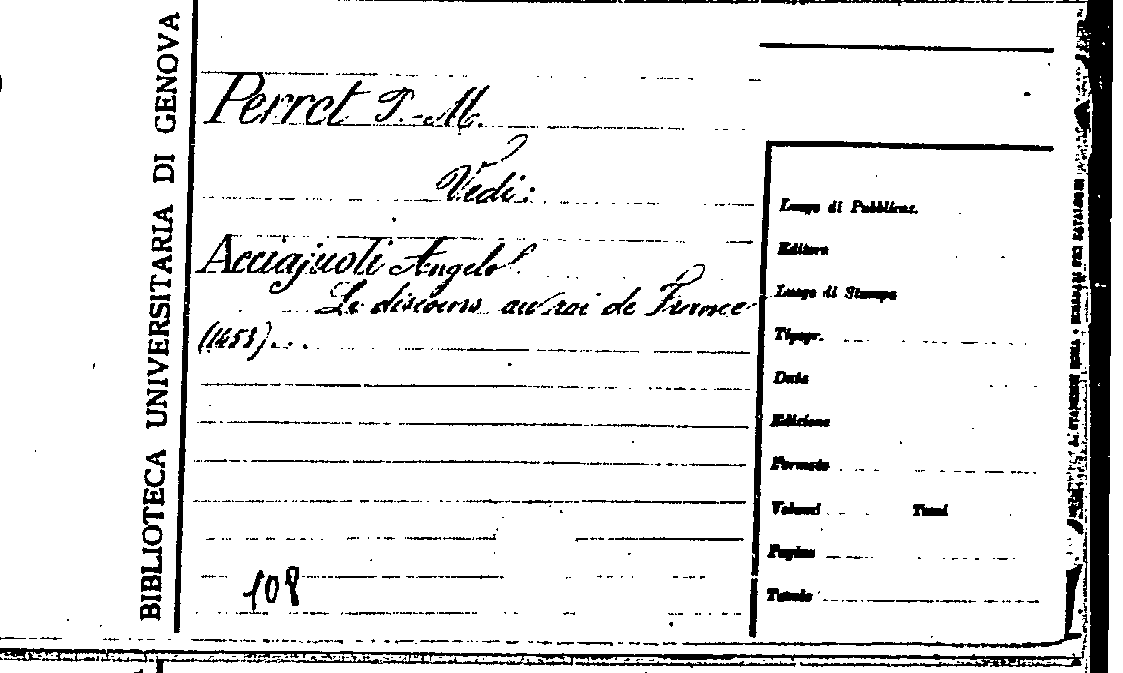 BIBLIOTECA UNIVERSITARIA DI GENOVA
Perret P.-M.
Vedi:
Acciajuoli Angelo.
Le discours au roi de France
(1453)...
108
Luogo di Pubblicaz.
Editore
Luogo di Stampa
Tipogr.
Data
Edizione
Formato
Volumi Tomi
Pagine